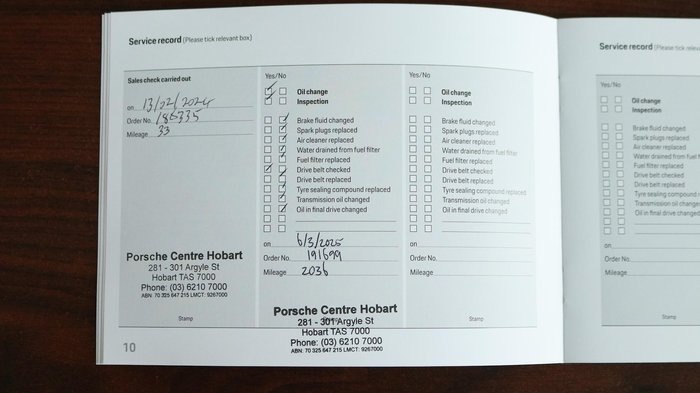 Service record (Please tick relevant box)
Sales check carried out
on 13/02/2024
Order No. 186335
Mileage 33
Porsche Centre Hobart
281 - 301 Argyle St
Hobart TAS 7000
Phone: (03) 6210 7000
ABN: 70 325 647 215 LMCT: 9267000
Stamp
10
Yes/No
Oil change
Inspection
Brake fluid changed
Spark plugs replaced
Air cleaner replaced
Water drained from fuel filter
Fuel filter replaced
Drive belt checked
Drive belt replaced
Tyre sealing compound replaced
Transmission oil changed
Oil in final drive changed
on 6/3/2025
Order No. 191699
Mileage 2036
Porsche Centre Hobart
281 - 301 Argyle St
Hobart TAS 7000
Phone: (03) 6210 7000
ABN: 70 325 647 215 LMCT: 9267000
Yes/No
Oil change
Inspection
Brake fluid changed
Spark plugs replaced
Air cleaner replaced
Water drained from fuel filter
Fuel filter replaced
Drive belt checked
Drive belt replaced
Tyre sealing compound replaced
Transmission oil changed
Oil in final drive changed
on
Order No.
Mileage
Stamp
Service record (Please tick
Yes/No
Oil change
Inspection
Brake fluid changed
Spark plugs replaced
Air cleaner replaced
Water drained from
Fuel filter replaced
Drive belt checked
Drive belt replaced
Tyre sealing compound
Transmission oil changed
Oil in final drive changed
on
Order No.
Mileage